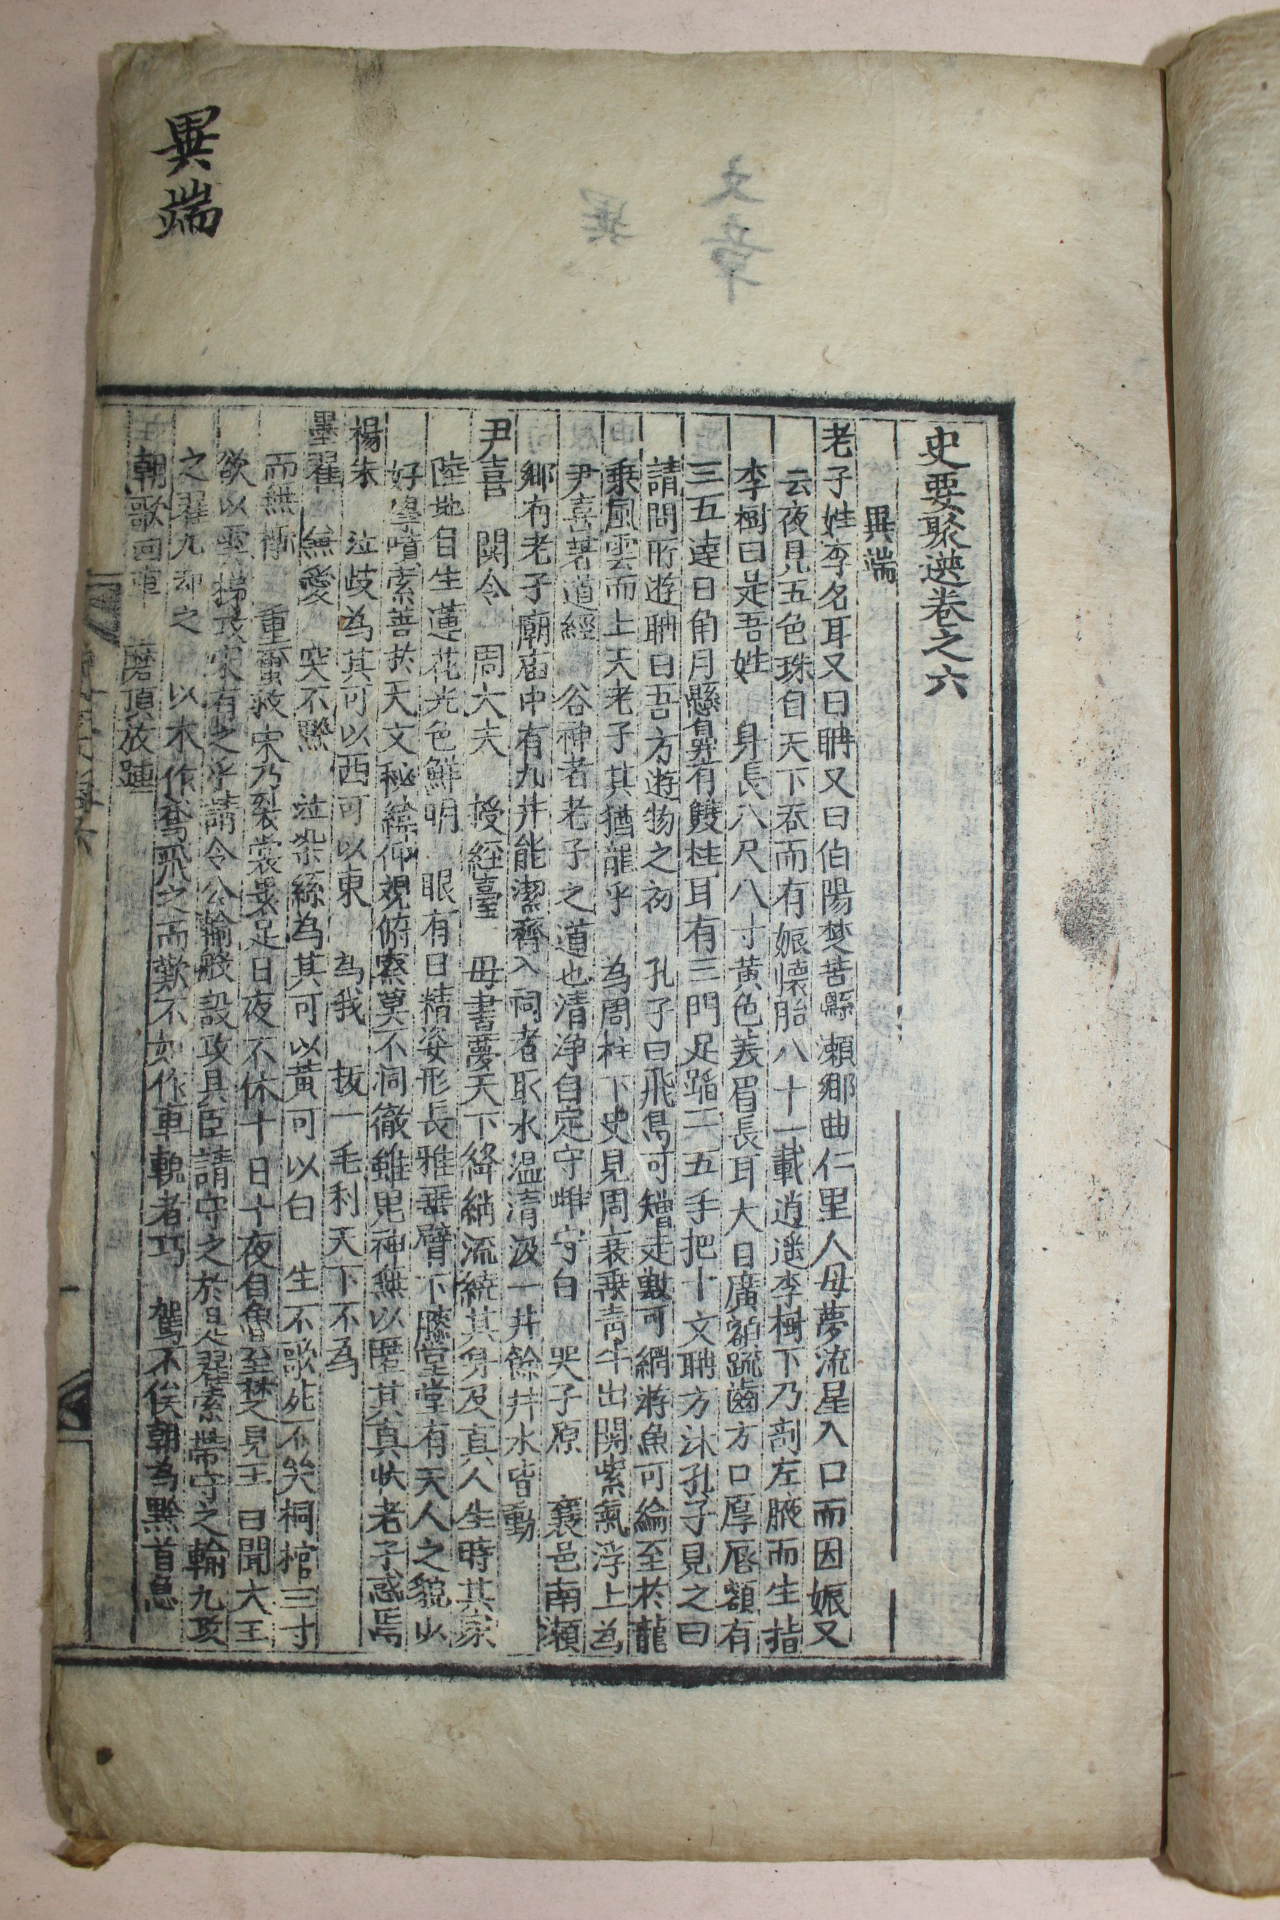 異端
史要聚選卷之六
異端
老子姓李名耳又曰聃又曰伯陽楚苦縣瀬鄉曲仁里人母夢流星入口而因娠又
云夜見五色珠自天下吞而有娠懷胎八十一載逍遥李樹下乃剖左腋而生指
李樹曰是吾姓 身長八尺八寸黃色美眉長耳大目廣額疏齒方口厚唇額有
三五達日角月懸鼻有雙柱耳有三門足蹈二五手把十文聃方沐孔子見之曰
請問所遊聃曰吾方遊物之初 孔子曰飛鳥可矰走獸可網游魚可綸至於龍
乘風雲而上天老子其猶龍乎 為周柱下史見周衰乘青牛出関紫氣浮上為
尹喜著道經 谷神者老子之道也清净自定守雌守白 哭子原 襄邑南瀬
鄉有老子廟庙中有九井能潔齋入祠者取水温清汲一井餘井水皆動
尹喜 関令 周大夫 授經臺 母書夢天下絳綃流繞其身及真人生時其家
陸地自生蓮花光色鮮明 眼有日精姿形長雅垂臂下膝堂堂有天人之貌少
好學墳素善於天文秘緯仰觀俯察莫不洞徹雖鬼神無以匿其真狀老子惑焉
楊朱 泣歧為其可以西可以東 為我 拔一毛利天下不為
墨翟 無愛 突不黔 泣染絲為其可以黃可以白 生不歌死不哭桐棺三寸
而無槨 重繭救宋乃裂裳裹足日夜不休十日十夜自魯至楚見王曰聞大王
欲以雲梯攻宋有之乎請令公輸般設攻具臣請守之於是翟索帶守之輸九攻
之翟九却之 以木作鳶飛之而歎不如作車輗者巧 駕不俟朝為黔首息
朝歌回車 磨頂放踵